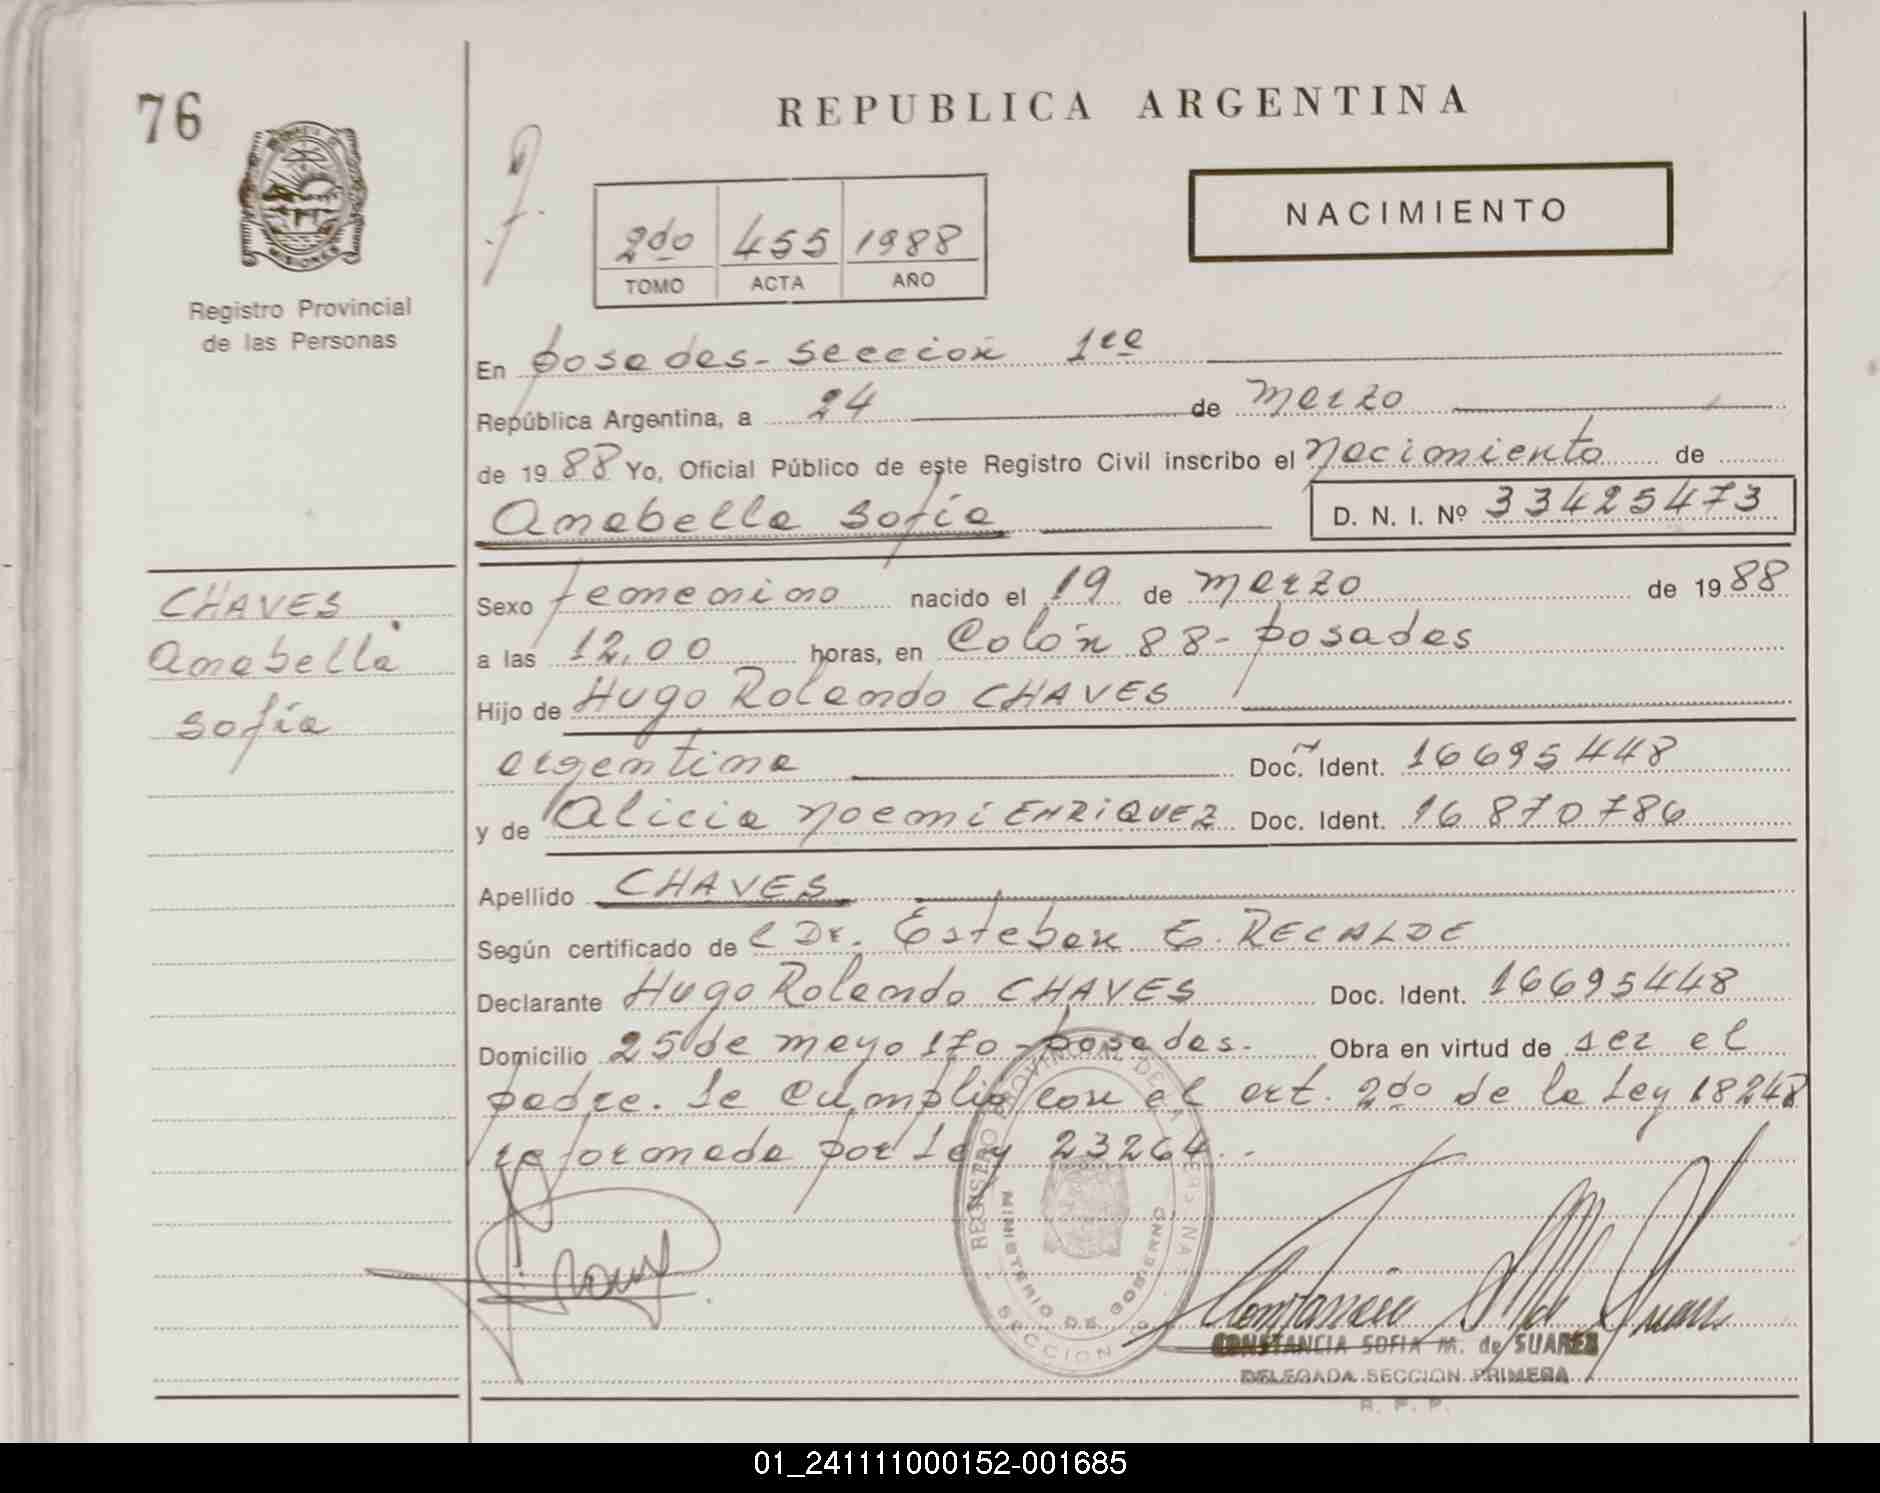 76
REPUBLICA ARGENTINA
NACIMIENTO
2do 455 1988
TOMO ACTA AÑO
MISIONES
Registro Provincial
de las Personas
En Posadas - Sección 1ra
República Argentina, a 24 de marzo
de 1988 Yo, Oficial Público de este Registro Civil inscribo el Nacimiento de
Anabella Sofía D. N. I. Nº 33425473
CHAVES
Anabella
Sofía
Sexo femenino nacido el 19 de marzo de 1988
a las 12,00 horas, en Colón 88 - Posadas
Hijo de Hugo Rolando CHAVES
argentina Doc. Ident. 16695448
y de Alicia Noemí ENRIQUEZ Doc. Ident. 16870786
Apellido CHAVES
Según certificado de l Dr. Esteban E. RECALDE
Declarante Hugo Rolando CHAVES Doc. Ident. 16695448
Domicilio 25 de mayo 170 - Posadas. Obra en virtud de ser el
padre. Se cumplió con el art. 2do de la Ley 18248
reformada por Ley 23264.-
MINISTERIO DE GOBIERNO
SECCION
CONSTANCIA SOFIA M. de SUAREZ
DELEGADA SECCION PRIMERA
R. P. P.
01_241111000152-001685